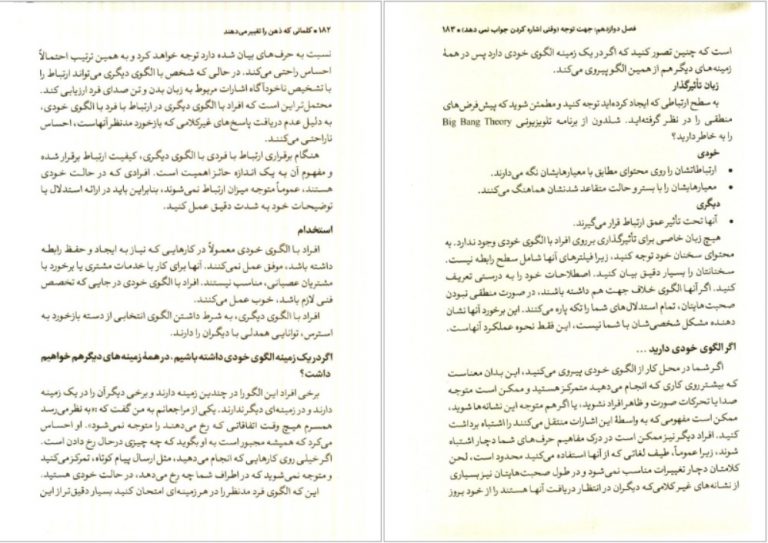 ۱۸۲ • کلماتی که ذهن را تغییر می‌دهند
نسبت به حرف‌های بیان شده دارد توجه خواهد کرد و به همین ترتیب احتمالاً
احساس راحتی می‌کند. در حالی که شخص با الگوی دیگری می‌تواند ارتباط را
با تشخیص ناخودآگاه اشارات مربوط به زبان بدن و تن صدای فرد ارزیابی کند.
محتمل‌تر این است که افراد با الگوی دیگری در ارتباط با فرد با الگوی خودی،
به دلیل عدم دریافت پاسخ‌های غیرکلامی که بازخورد مدنظر آنهاست، احساس
ناراحتی می‌کنند.
هنگام برقراری ارتباط با فردی با الگوی دیگری، کیفیت ارتباط برقرار شده
و مفهوم آن به یک اندازه حائز اهمیت است. افرادی که در حالت خودی
هستند، عموماً متوجه میزان ارتباط نمی‌شوند، بنابراین باید در ارائه استدلال یا
توضیحات خود به شدت دقیق عمل کنید.
استخدام
افراد با الگوی خودی معمولاً در کارهایی که نیاز به ایجاد و حفظ رابطه
داشته باشد، موفق عمل نمی‌کنند. آنها برای کار با خدمات مشتری یا برخورد با
مشتریان عصبانی، مناسب نیستند. افراد با الگوی خودی در جایی که تخصص
فنی لازم باشد، خوب عمل می‌کنند.
افراد با الگوی دیگری، به شرط داشتن الگوی انتخابی از دسته بازخورد به
استرس، توانایی همدلی با دیگران را دارند.
اگر در یک زمینه الگوی خودی داشته باشیم، در همهٔ زمینه‌های دیگر هم خواهیم
داشت؟
برخی افراد این الگو را در چندین زمینه دارند و برخی دیگر آن را در یک زمینه
دارند و در زمینه‌ای دیگر ندارند. یکی از مراجعانم به من گفت که: «به نظر می‌رسد
همسرم هیچ وقت اتفاقاتی که رخ می‌دهند را متوجه نمی‌شود». او احساس
می‌کرد که همیشه مجبور است به او بگوید که چه چیزی درحال رخ دادن است.
اگر خیلی روی کارهایی که انجام می‌دهید، مثل ارسال پیام کوتاه، تمرکز می‌کنید
و متوجه نمی‌شوید که در اطراف شما چه رخ می‌دهد، در حالت خودی هستید.
این که الگوی فرد مدنظر را در هر زمینه‌ای امتحان کنید بسیار دقیق‌تر از این
فصل دوازدهم: جهت توجه (وقتی اشاره کردن جواب نمی دهد) • ۱۸۳
است که چنین تصور کنید که اگر در یک زمینه الگوی خودی دارد پس در همهٔ
زمینه‌های دیگر هم از همین الگو پیروی می‌کند.
زبان تأثیرگذار
به سطح ارتباطی که ایجاد کرده‌اید توجه کنید و مطمئن شوید که پیش‌فرض‌های
منطقی را در نظر گرفته‌اید. شلدون از برنامه تلویزیونی Big Bang Theory
را به خاطر دارید؟
خودی
• ارتباطاتشان را روی محتوای مطابق با معیارهایشان نگه می‌دارند.
• معیارهایشان را با بستر و حالت متقاعد شدنشان هماهنگ می‌کنند.
دیگری
• آنها تحت تأثیر عمق ارتباط قرار می‌گیرند.
هیچ زبان خاصی برای تأثیرگذاری بر روی افراد با الگوی خودی وجود ندارد. به
محتوای سخنان خود توجه کنید، زیرا فیلترهای آنها شامل سطح رابطه نیست.
سخنانتان را بسیار دقیق بیان کنید. اصطلاحات خود را به درستی تعریف
کنید. اگر آنها الگوی خلاف جهت هم داشته باشند، در صورت منطقی نبودن
صحبت‌هایتان، تمام استدلال‌های شما را تکه پاره می‌کنند. این برخورد آنها نشان
دهنده مشکل شخصی‌شان با شما نیست، این فقط نحوه عملکرد آنهاست.
اگر الگوی خودی دارید ...
اگر شما در محل کار از الگوی خودی پیروی می‌کنید، این بدان معناست
که بیشتر روی کاری که انجام می‌دهید متمرکز هستید و ممکن است متوجه
صدا یا تحرکات صورت و ظاهر افراد نشوید، یا اگر هم متوجه این نشانه‌ها شوید،
ممکن است مفهومی که به واسطهٔ این اشارات منتقل می‌کنند را اشتباه برداشت
کنید. افراد دیگر نیز ممکن است در درک مفاهیم حرف‌های شما دچار اشتباه
شوند، زیرا عموماً، طیف لغاتی که از آنها استفاده می‌کنید محدود است، لحن
کلامتان دچار تغییرات مناسب نمی‌شود و در طول صحبت‌هایتان نیز بسیاری
از نشانه‌های غیرکلامی‌که دیگران در انتظار دریافت آنها هستند را از خود بروز